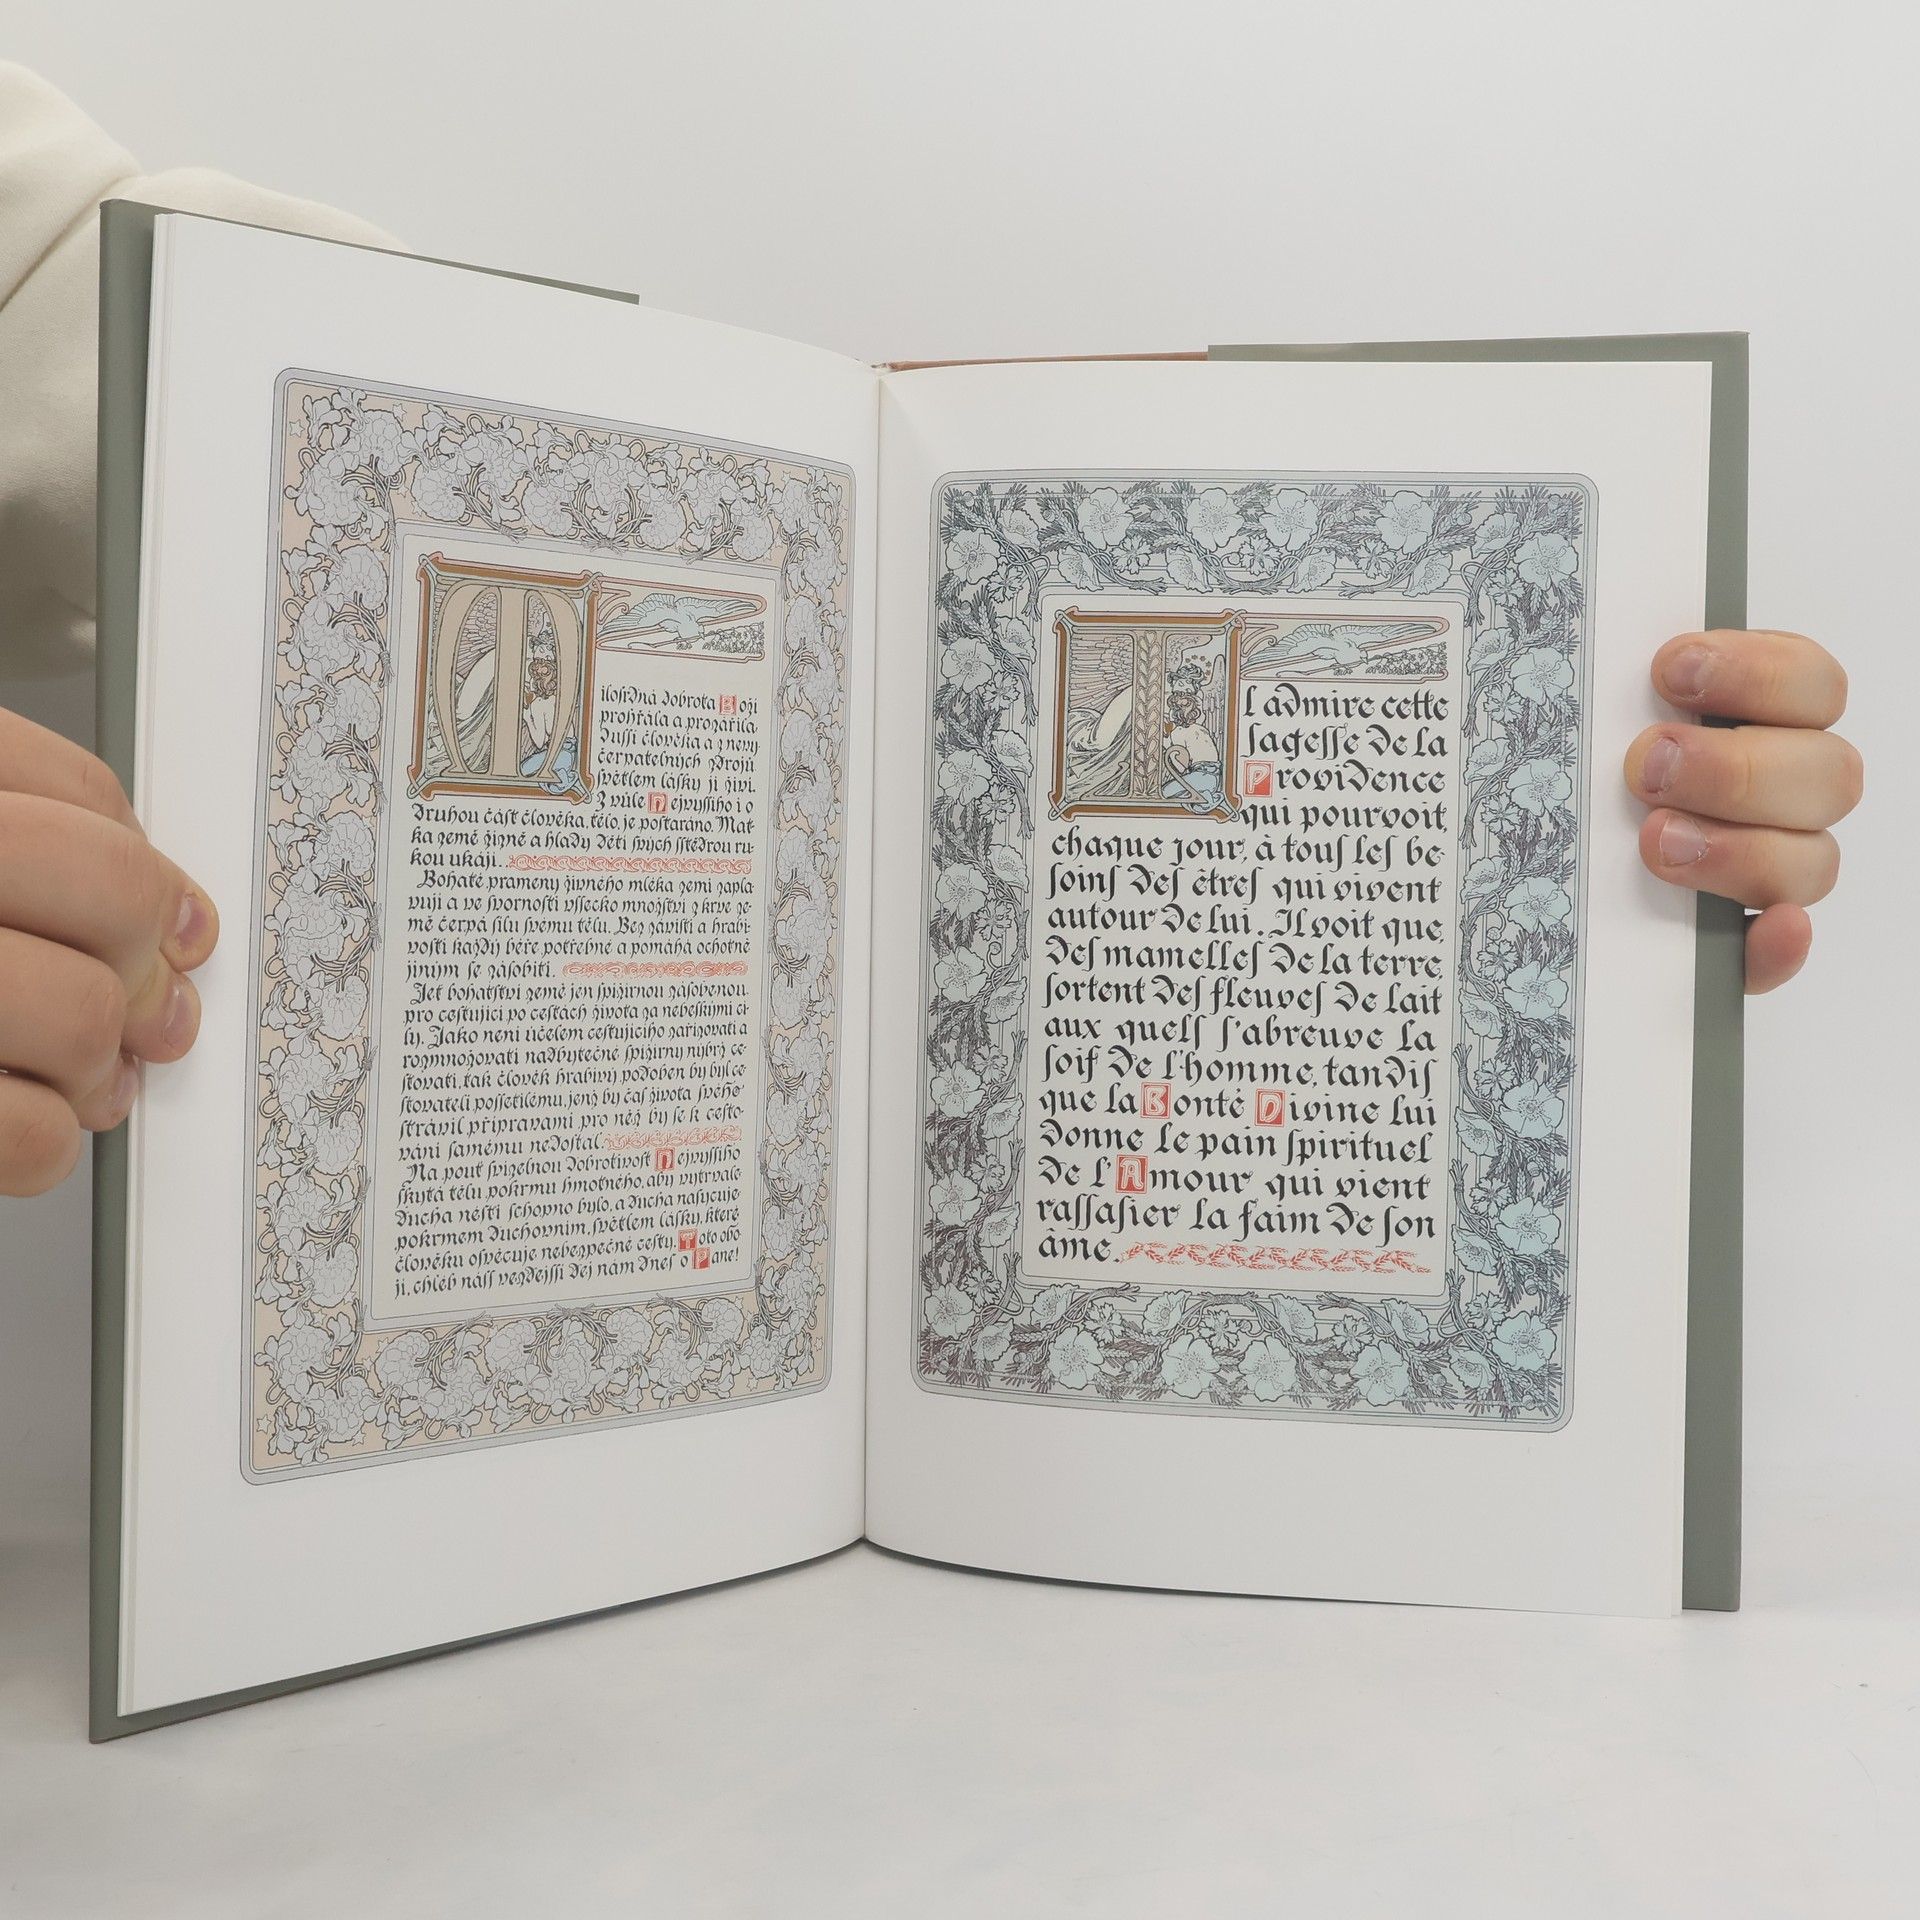 Milosrdná dobrota Boží
prohřála a prozářila
dussi člověka a z nevy-
čerpatelných zdrojů
světlem lásky ji živí.
Z vůle Nejvyššího i o
druhou část člověka, tělo, je postaráno. Mat-
ka země žízně a hlady dětí svých sstědrou ru-
kou ukájí.
Bohaté prameny živného mléka zemi zapla-
vují a ve svornosti vssecko množství z krve ze-
mě čerpá sílu svému tělu. Bez závisti a hrabi-
vosti každý béře potřebné a pomáhá ochotně
jiným se zásobiti.
Jet bohatství země jen spižírnou zásobenou
pro cestující po cestách života za nebeskými cí-
ly. Jako není účelem cestujícího zařizovati a
rozmnožovati nadbytečně spižírny nýbrž ce-
stovati, tak člověk hrabivý podoben by byl ce-
stovateli possetilému, jenž by čas života svého
strávil připravami pro něž by se k cesto-
vání samému nedostal.
Na pouť svízelnou dobrotivost Nejvyssího
skytá tělu pokrmu hmotného, aby vytrvale
ducha nésti schopno bylo, a ducha nasycuje
pokrmem duchovním, světlem lásky, které
člověku osvěcuje nebezpečné cesty. Toto obo-
jí, chléb náss vezdejssí dej nám dnes o Pane!
Il admire cette
sagesse de la
Providence
qui pourvoit,
chaque jour, à tous les be-
soins des êtres qui vivent
autour de lui. Il voit que,
des mamelles de la terre,
sortent des fleuves de lait
aux quels s'abreuve la
soif de l'homme, tandis
que la Bonté Divine lui
donne le pain spirituel
de l'Amour qui vient
rassasier la faim de son
âme.